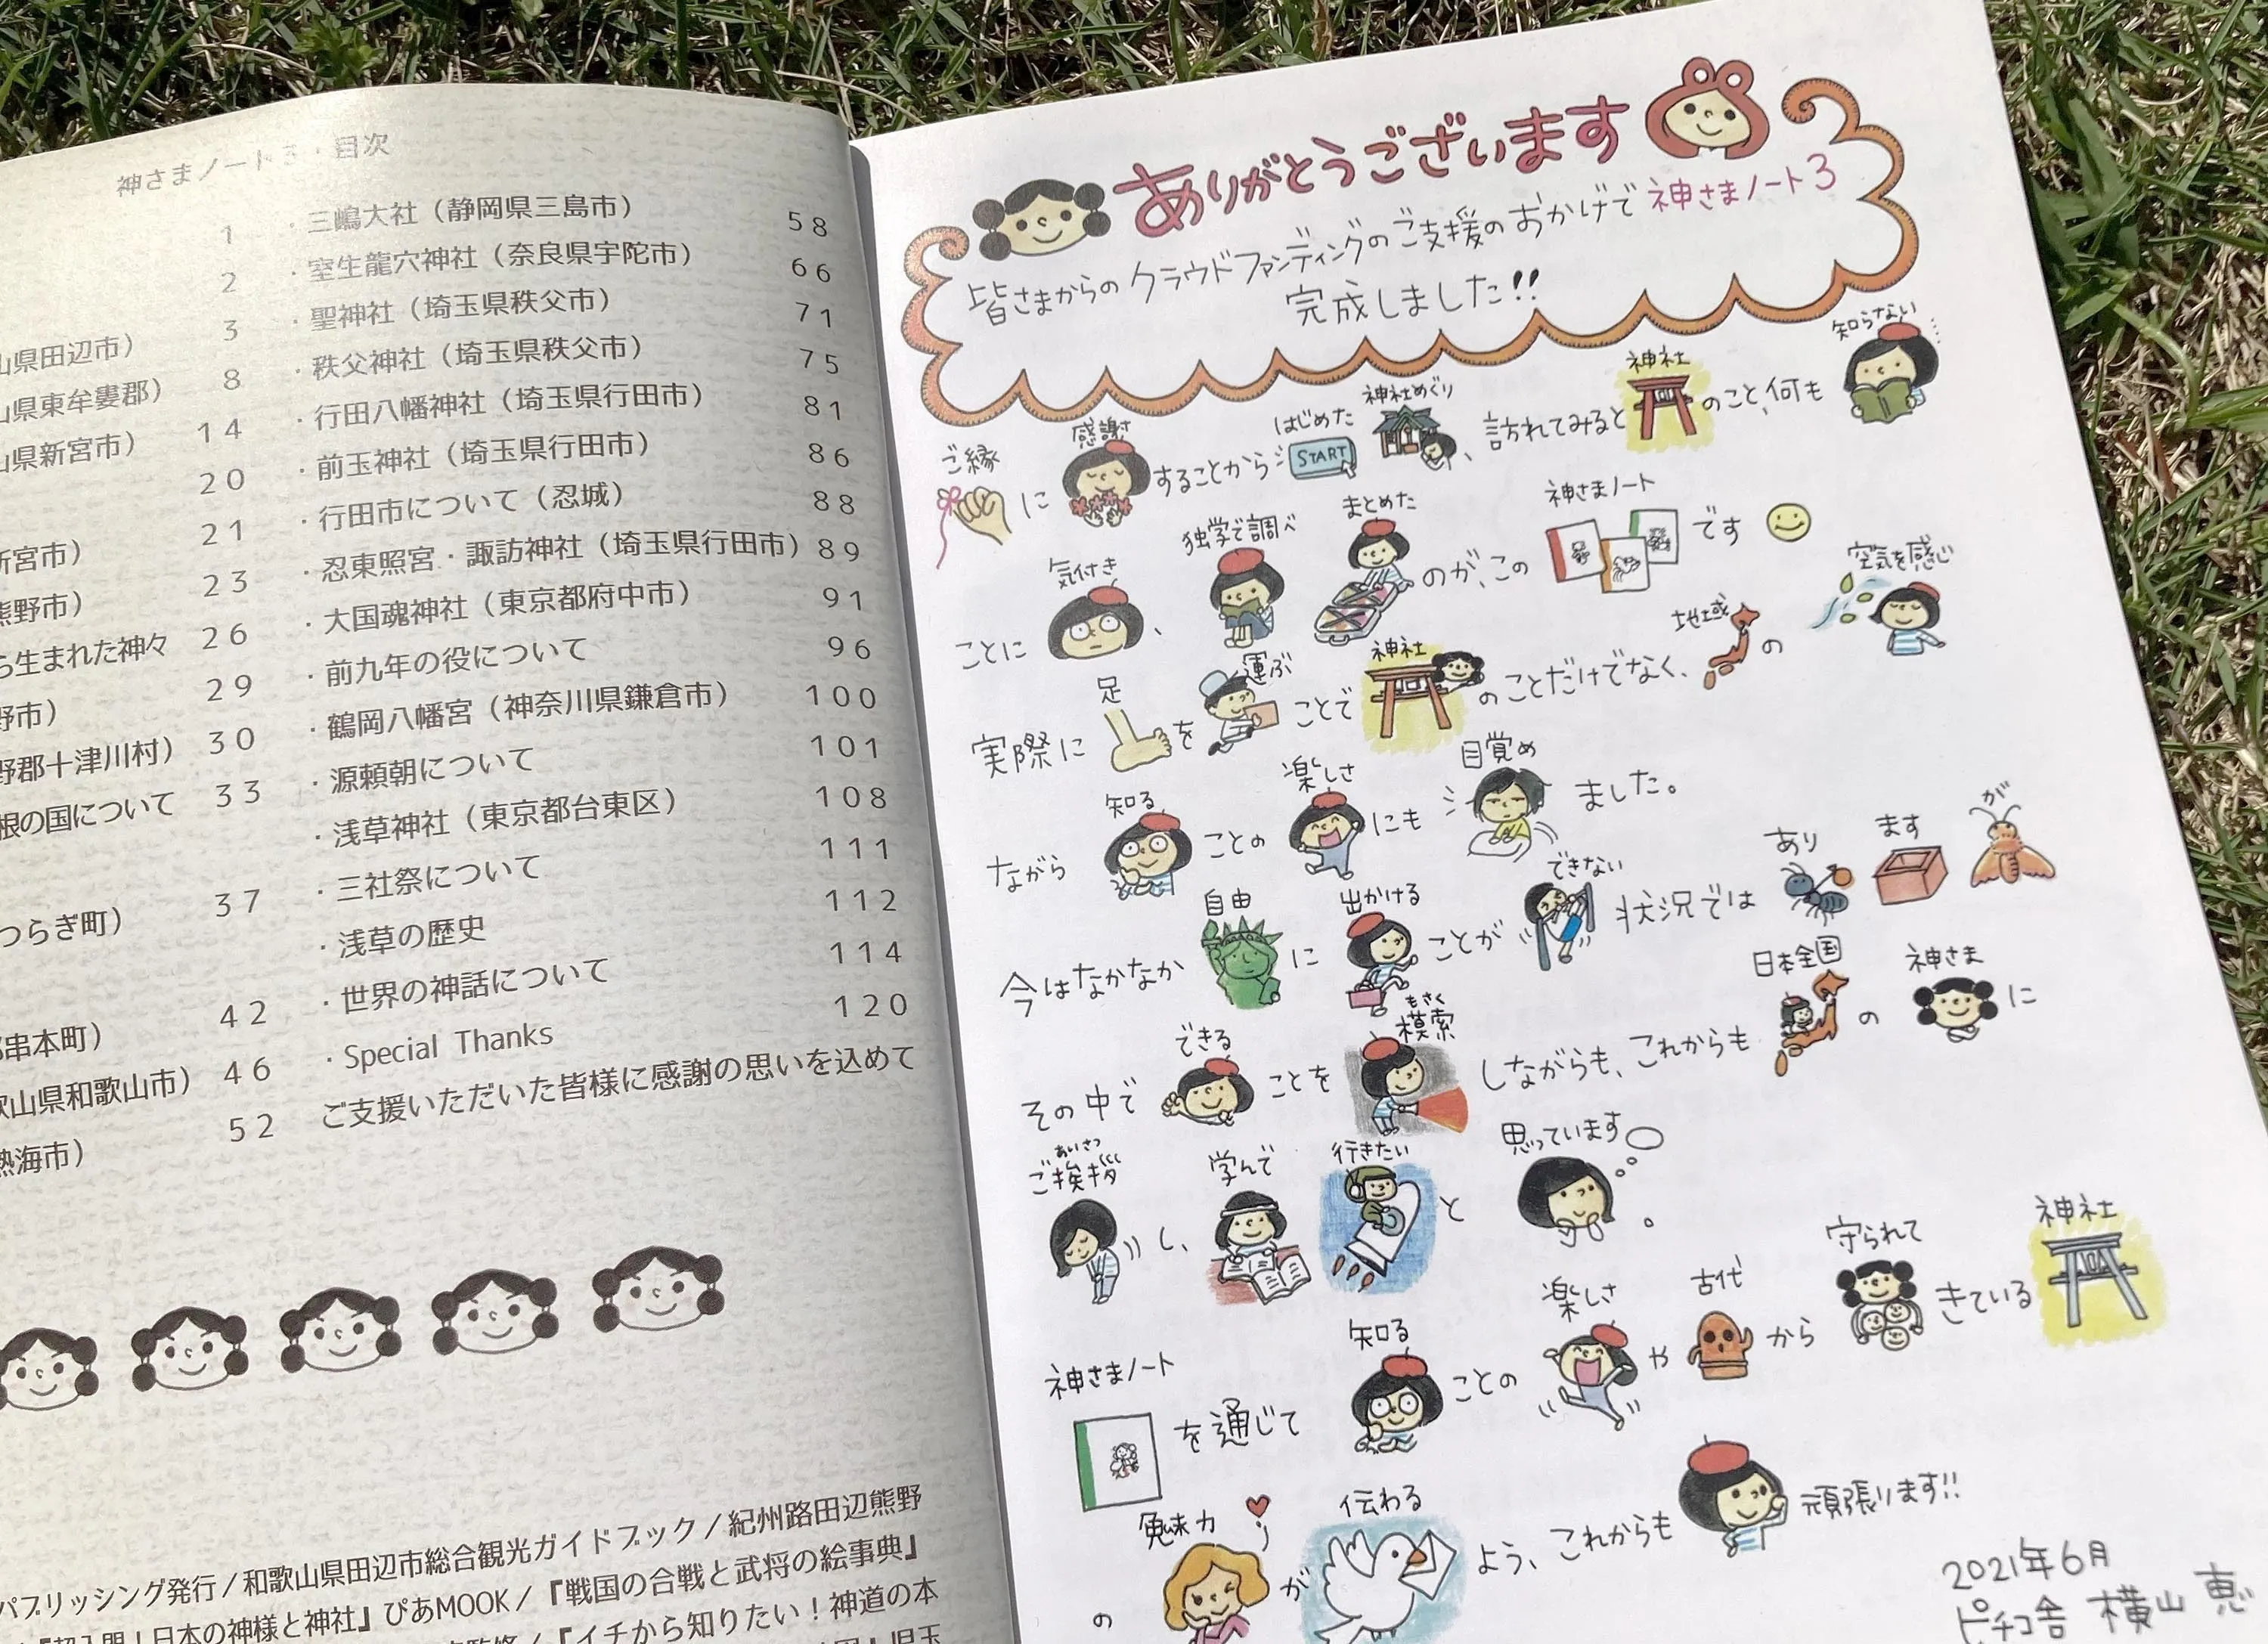 神さまノート3・目次
1
2
3
山県田辺市） 8
山県東牟婁郡） 14
山県新宮市） 20
21
新宮市） 23
熊野市） 26
ら生まれた神々 29
野市） 30
野郡十津川村） 33
根の国について
37
つらぎ町）
42
串本町） 46
歌山県和歌山市） 52
熱海市）
・三嶋大社（静岡県三島市） 58
・室生龍穴神社（奈良県宇陀市） 66
・聖神社（埼玉県秩父市） 71
・秩父神社（埼玉県秩父市） 75
・行田八幡神社（埼玉県行田市） 81
・前玉神社（埼玉県行田市） 86
・行田市について（忍城） 88
・忍東照宮・諏訪神社（埼玉県行田市） 89
・大国魂神社（東京都府中市） 91
・前九年の役について 96
・鶴岡八幡宮（神奈川県鎌倉市） 100
・源頼朝について 101
・浅草神社（東京都台東区） 108
・三社祭について 111
・浅草の歴史 112
・世界の神話について 114
・Special Thanks 120
ご支援いただいた皆様に感謝の思いを込めて
パブリッシング発行／和歌山県田辺市総合観光ガイドブック／紀州路田辺熊野
『超入門！日本の神様と神社』ぴあMOOK／『戦国の合戦と武将の絵事典』
監修／『イチから知りたい！神道の本
児玉
ありがとうございます
皆さまからのクラウドファンディングのご支援のおかげで神さまノート3
完成しました!!
ご縁に感謝することからはじめたSTART神社めぐり、訪れてみると神社のこと、何も知らない
ことに気付き、独学で調べまとめたのが、この神さまノートです
実際に足を運ぶことで神社のことだけでなく、地域の空気を感じ
ながら知ることの楽しさにも目覚めました。
今はなかなか自由に出かけることができない状況ではありますが
その中でできることを模索もさくしながらも、これからも日本全国の神さまに
ご挨拶あいさつし、学んで行きたいと思っています。
神さまノートを通じて知ることの楽しさや古代から守られてきている神社
の魅力が伝わるよう、これからも頑張ります!!
2021年6月
ピチコ舎 横山 恵